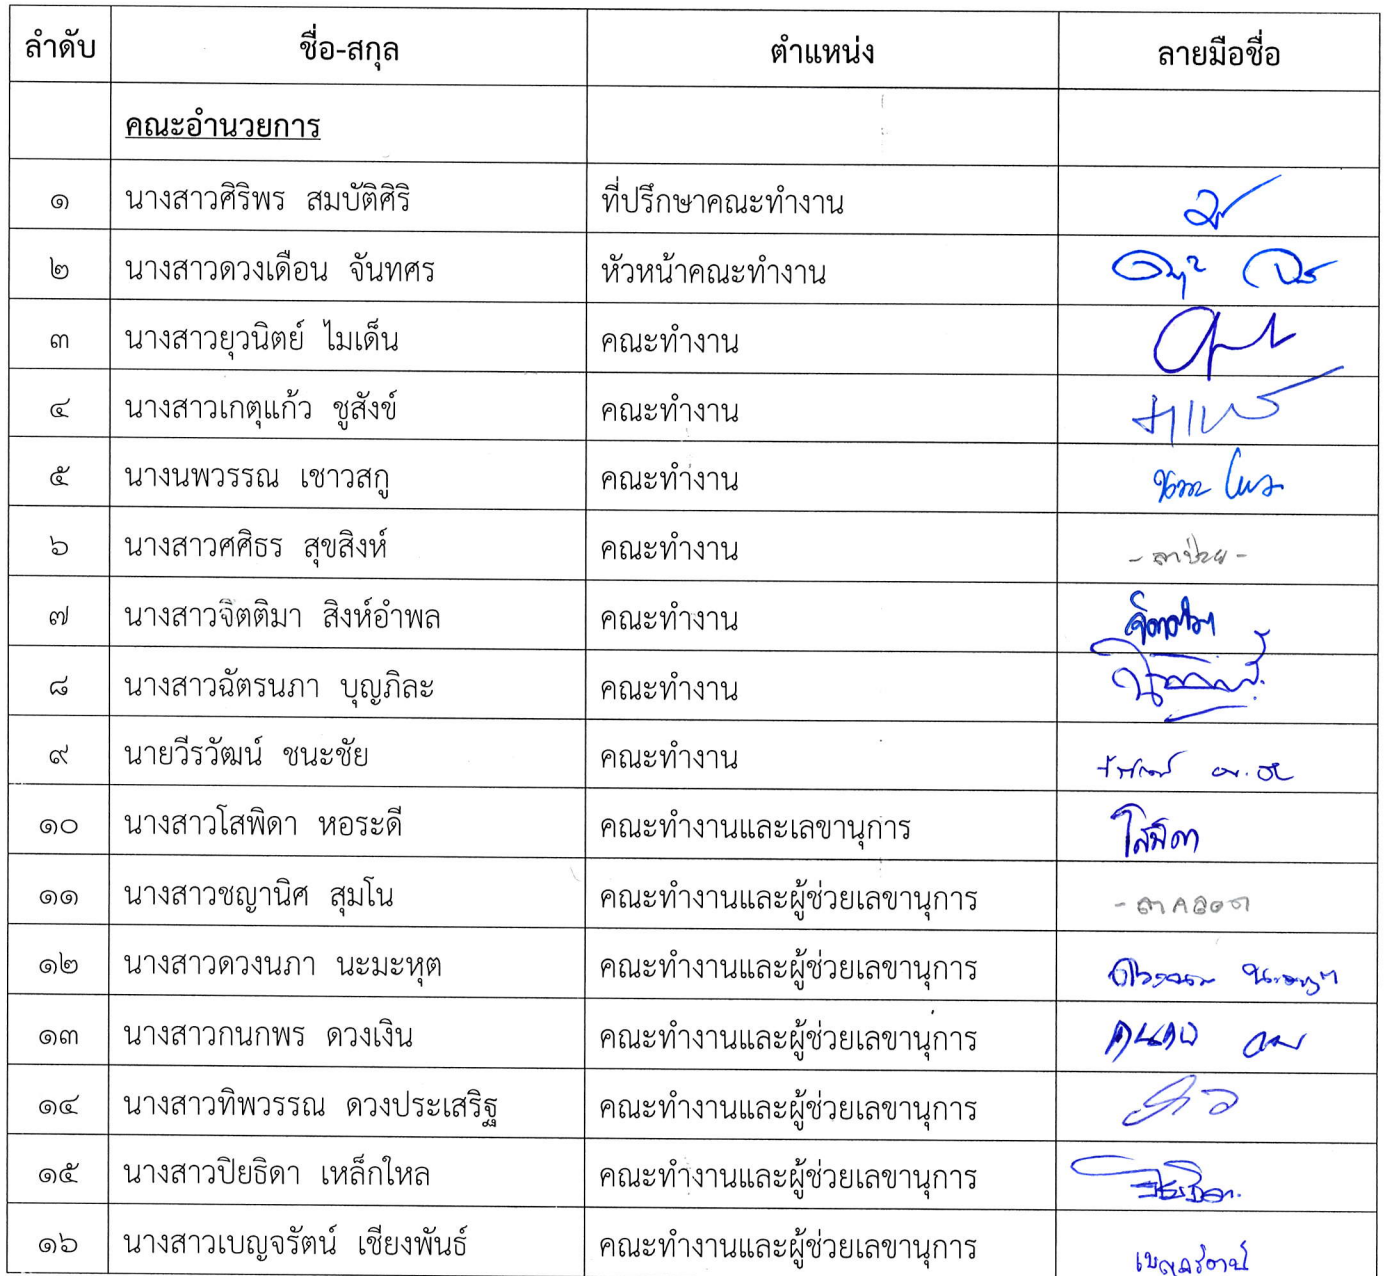 ลำดับ ชื่อ-สกุล ตำแหน่ง ลายมือชื่อ
คณะอำนวยการ
๑ นางสาวศิริพร สมบัติศิริ ที่ปรึกษาคณะทำงาน
๒ นางสาวดวงเดือน จันทศร หัวหน้าคณะทำงาน
๓ นางสาวยุวนิตย์ ไมเด็น คณะทำงาน
๔ นางสาวเกตุแก้ว ชูสังข์ คณะทำงาน
๕ นางนพวรรณ เชาวสกู คณะทำงาน
๖ นางสาวศศิธร สุขสิงห์ คณะทำงาน - ลาป่วย -
๗ นางสาวจิตติมา สิงห์อำพล คณะทำงาน
๘ นางสาวฉัตรนภา บุญภิละ คณะทำงาน
๙ นายวีรวัฒน์ ชนะชัย คณะทำงาน
๑๐ นางสาวโสพิดา หอระดี คณะทำงานและเลขานุการ โสพิดา
๑๑ นางสาวชญานิศ สุมโน คณะทำงานและผู้ช่วยเลขานุการ - ลาคลอด
๑๒ นางสาวดวงนภา นะมะหุต คณะทำงานและผู้ช่วยเลขานุการ
๑๓ นางสาวกนกพร ดวงเงิน คณะทำงานและผู้ช่วยเลขานุการ
๑๔ นางสาวทิพวรรณ ดวงประเสริฐ คณะทำงานและผู้ช่วยเลขานุการ
๑๕ นางสาวปิยธิดา เหล็กใหล คณะทำงานและผู้ช่วยเลขานุการ
๑๖ นางสาวเบญจรัตน์ เชียงพันธ์ คณะทำงานและผู้ช่วยเลขานุการ เบญจรัตน์